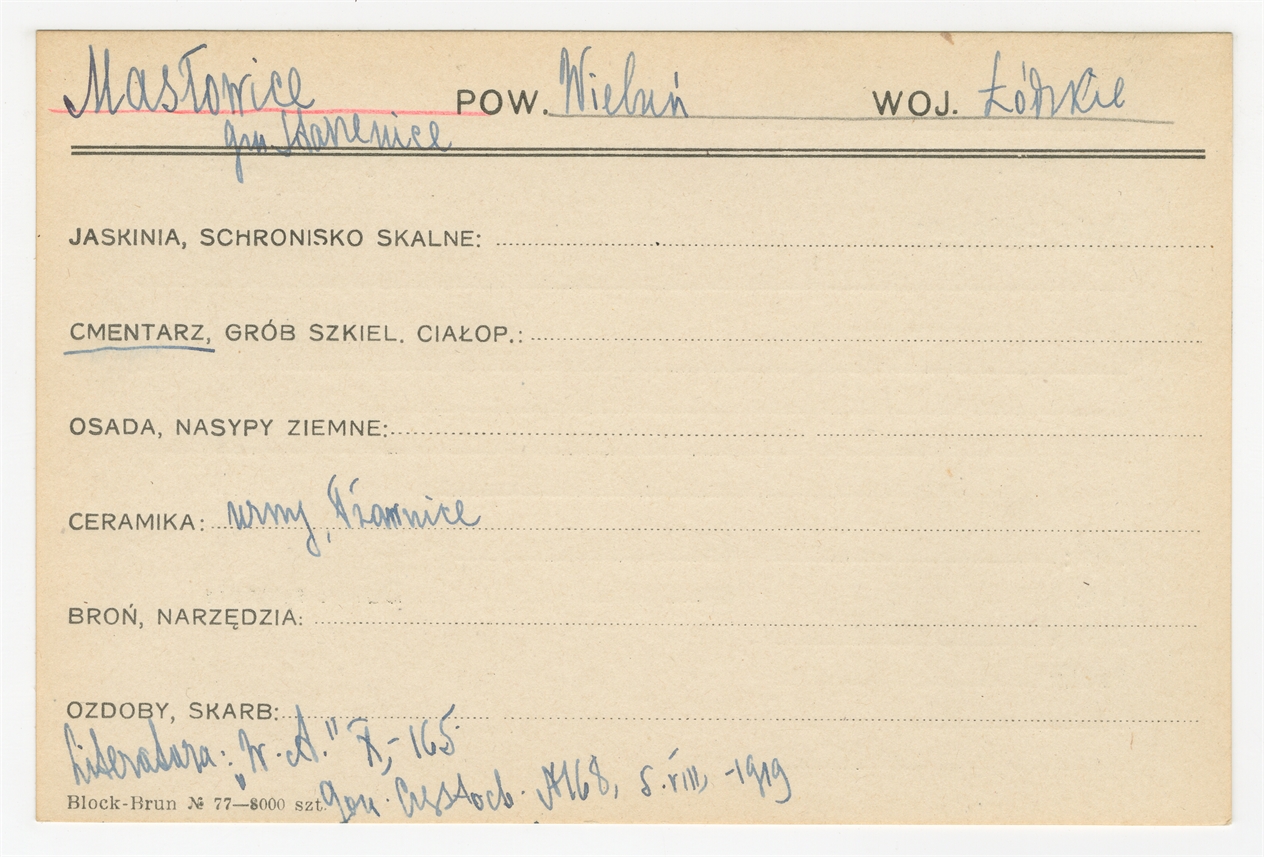 Masłowice POW. Wieluń WOJ. Łódzkie
gm. Starzenice
JASKINIA, SCHRONISKO SKALNE:
CMENTARZ, GRÓB SZKIEL. CIAŁOP.:
OSADA, NASYPY ZIEMNE:
CERAMIKA: urny,
BROŃ, NARZĘDZIA:
OZDOBY, SKARB:
Literatura: „W. A." X, - 165
Gon. Częstoch. № 168, 5. VIII, - 1919
Block-Brun № 77—8000 szt.